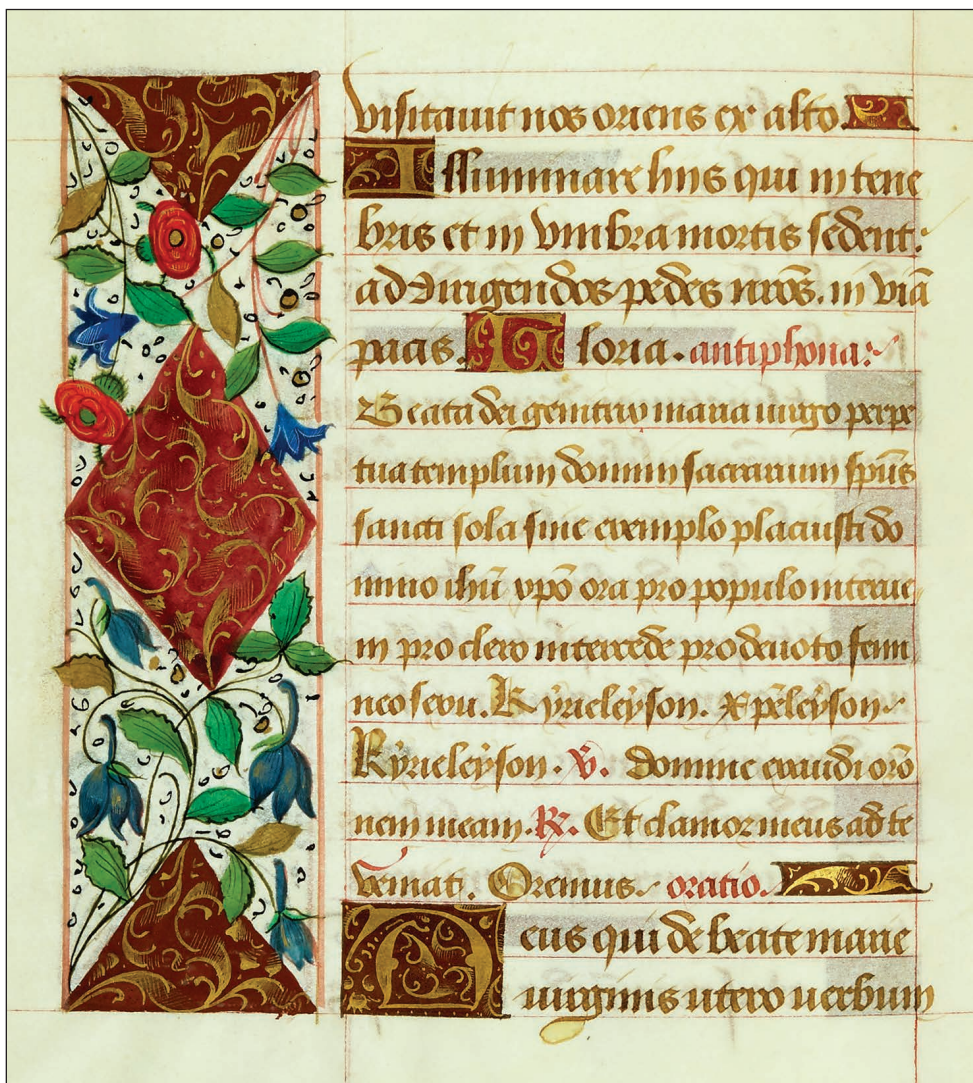 visitavit nos oriens ex alto.
Illuminare hiis qui in tene
bris et in vmbra mortis sedent:
ad dirigendos pedes nr̄os. in viā
pacis. Gloria. antiphona:
Beata dei genitrix maria uirgo perpe
tua templum domini sacrarium sp̄us
sancti sola sine exemplo placuisti do
mino ihū xpō ora pro populo interue
ni pro clero intercede pro deuoto femi
neo sexu. Kÿrieleÿson. Xp̄eleÿson.
Kÿrieleÿson. V. Domine exaudi orō
nem meam. R. Et clamor meus ad te
veniat. Oremus. oratio.
Deus qui de beate marie
uirginis utero uerbum